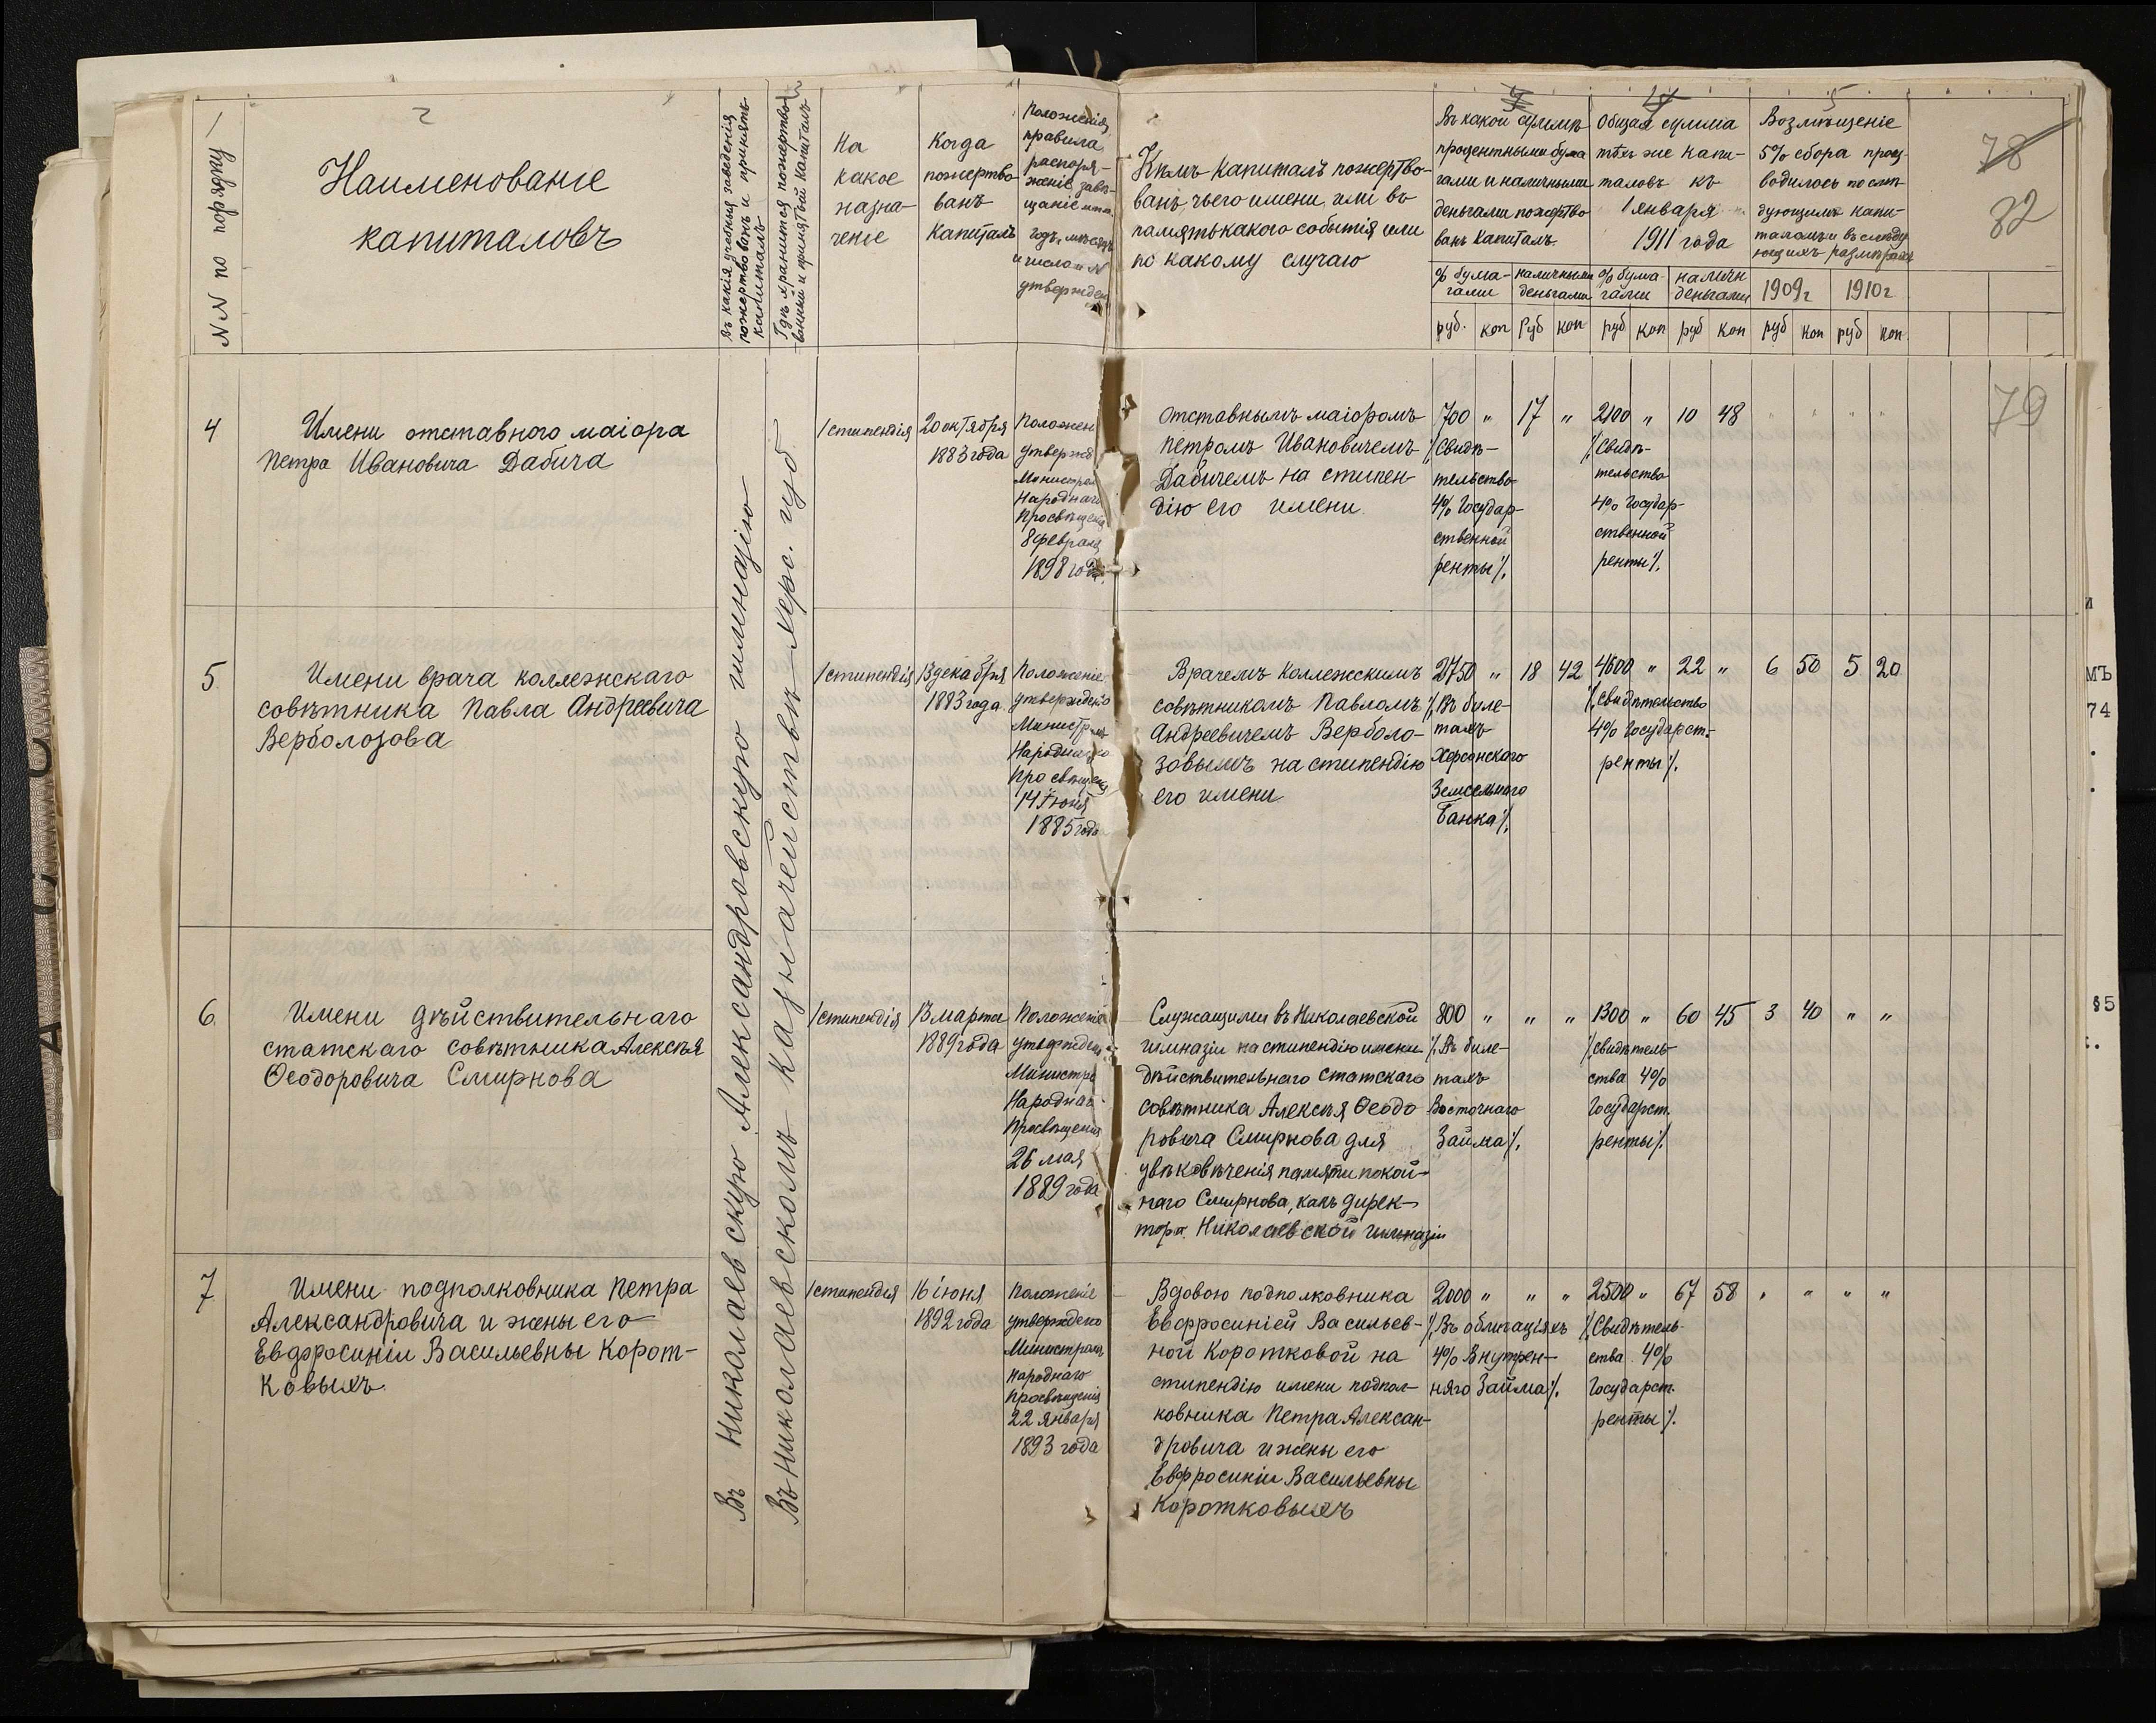 NN по порядку
2
Наименованіе
капиталовъ
Въ какія учебныя заведенія
пожертвованъ и принятъ
капиталъ
Гдѣ хранится пожертво-
ванный и принятый капиталъ
На
какое
назна-
ченіе
Когда
пожертво-
ванъ
капиталъ
Положенія,
правила,
распоря-
женіе, завѣ-
щаніе
годъ, мѣсяцъ
и число и N
утвержден
Кѣмъ капиталъ пожертво-
ванъ, чьего имени, или въ
память какого событія или
по какому случаю
Въ какой суммѣ
процентными бума
гами и наличными
деньгами пожертво
ванъ капиталъ.
% бума-
гами
наличными
деньгами
руб. коп руб коп
Общая сумма
тѣхъ же капи-
таловъ къ
1 января
1911 года
% бума-
гами
наличн
деньгами
руб коп руб коп
5
Возмѣщеніе
5% сбора произ-
водилось по слѣ-
дующимъ капи-
таламъ и въ слѣду
ющихъ размѣрахъ
1909г 1910г
руб коп руб коп.
78
82
79
Въ Николаевскую Александровскую гимназію
Въ Николаевскомъ казначействѣ Херс. губ
4
Имени отставного маіора
Петра Ивановича Дабича
1 стипендія
20 октября
1883 года
Положен
утвержд
Министром
Народнаго
Просвѣщенія
8 февраля
1898 года
Отставнымъ маіоромъ
Петромъ Ивановичемъ
Дабичемъ на стипен-
дію его имени.
700 " 17 " 2100 " 10 48 " " " "
/Свидѣ-
тельство
4% Государ-
ственной
ренты/.
/Свидѣ-
тельство
4% Государ-
ственной
ренты/.
5
Имени врача коллежскаго
совѣтника Павла Андреевича
Верболозова
1 стипендія
13 декабря
1883 года
Положеніе
утверждено
Министромъ
Народнаго
Просвѣщенія
14 Іюня
1885 года
Врачемъ Коллежскимъ
совѣтникомъ Павломъ
Андреевичемъ Верболо-
зовымъ на стипендію
его имени
2750 " 18 42 4600 " 22 " 6 50 5 20
/Въ биле-
тахъ
Херсонскаго
Земельнаго
Банка/.
/Свидѣтельство
4% Государст.
ренты/.
6
Имени дѣйствительнаго
статскаго совѣтника Алексѣя
Ѳеодоровича Смирнова
1 стипендія
13 марта
1889 года
Положеніе
утвержден
Министро
Народнаг
Просвѣщенія
26 мая
1889 года
Служащими въ Николаевской
гимназіи на стипендію имени
дѣйствительнаго статскаго
совѣтника Алексѣя Ѳеодо
ровича Смирнова для
увѣковѣченія памяти покой-
наго Смирнова, какъ дирек-
тора Николаевской гимназіи
800 " " " 1300 " 60 45 3 40 " "
/Въ биле-
тахъ
Восточнаго
Займа/.
/Свидѣтель-
ства 4%
Государст.
ренты/.
7
Имени подполковника Петра
Александровича и жены его
Евфросиніи Васильевны Корот-
ковыхъ
1 стипендія
16 іюня
1892 года
Положеніе
утверждено
Министромъ
Народнаго
Просвѣщенія
22 января
1893 года
Вдовою подполковника
Евфросиніей Васильев-
ной Коротковой на
стипендію имени подпол-
ковника Петра Алексан-
дровича и жены его
Евфросиніи Васильевны
Коротковыхъ
2000 " " " 2500 " 67 58 " " " "
/Въ облигаціяхъ
4% Внутрен-
няго Займа/.
/Свидѣтель-
ства 4%
Государст.
ренты/.
и
МЪ
74
§5